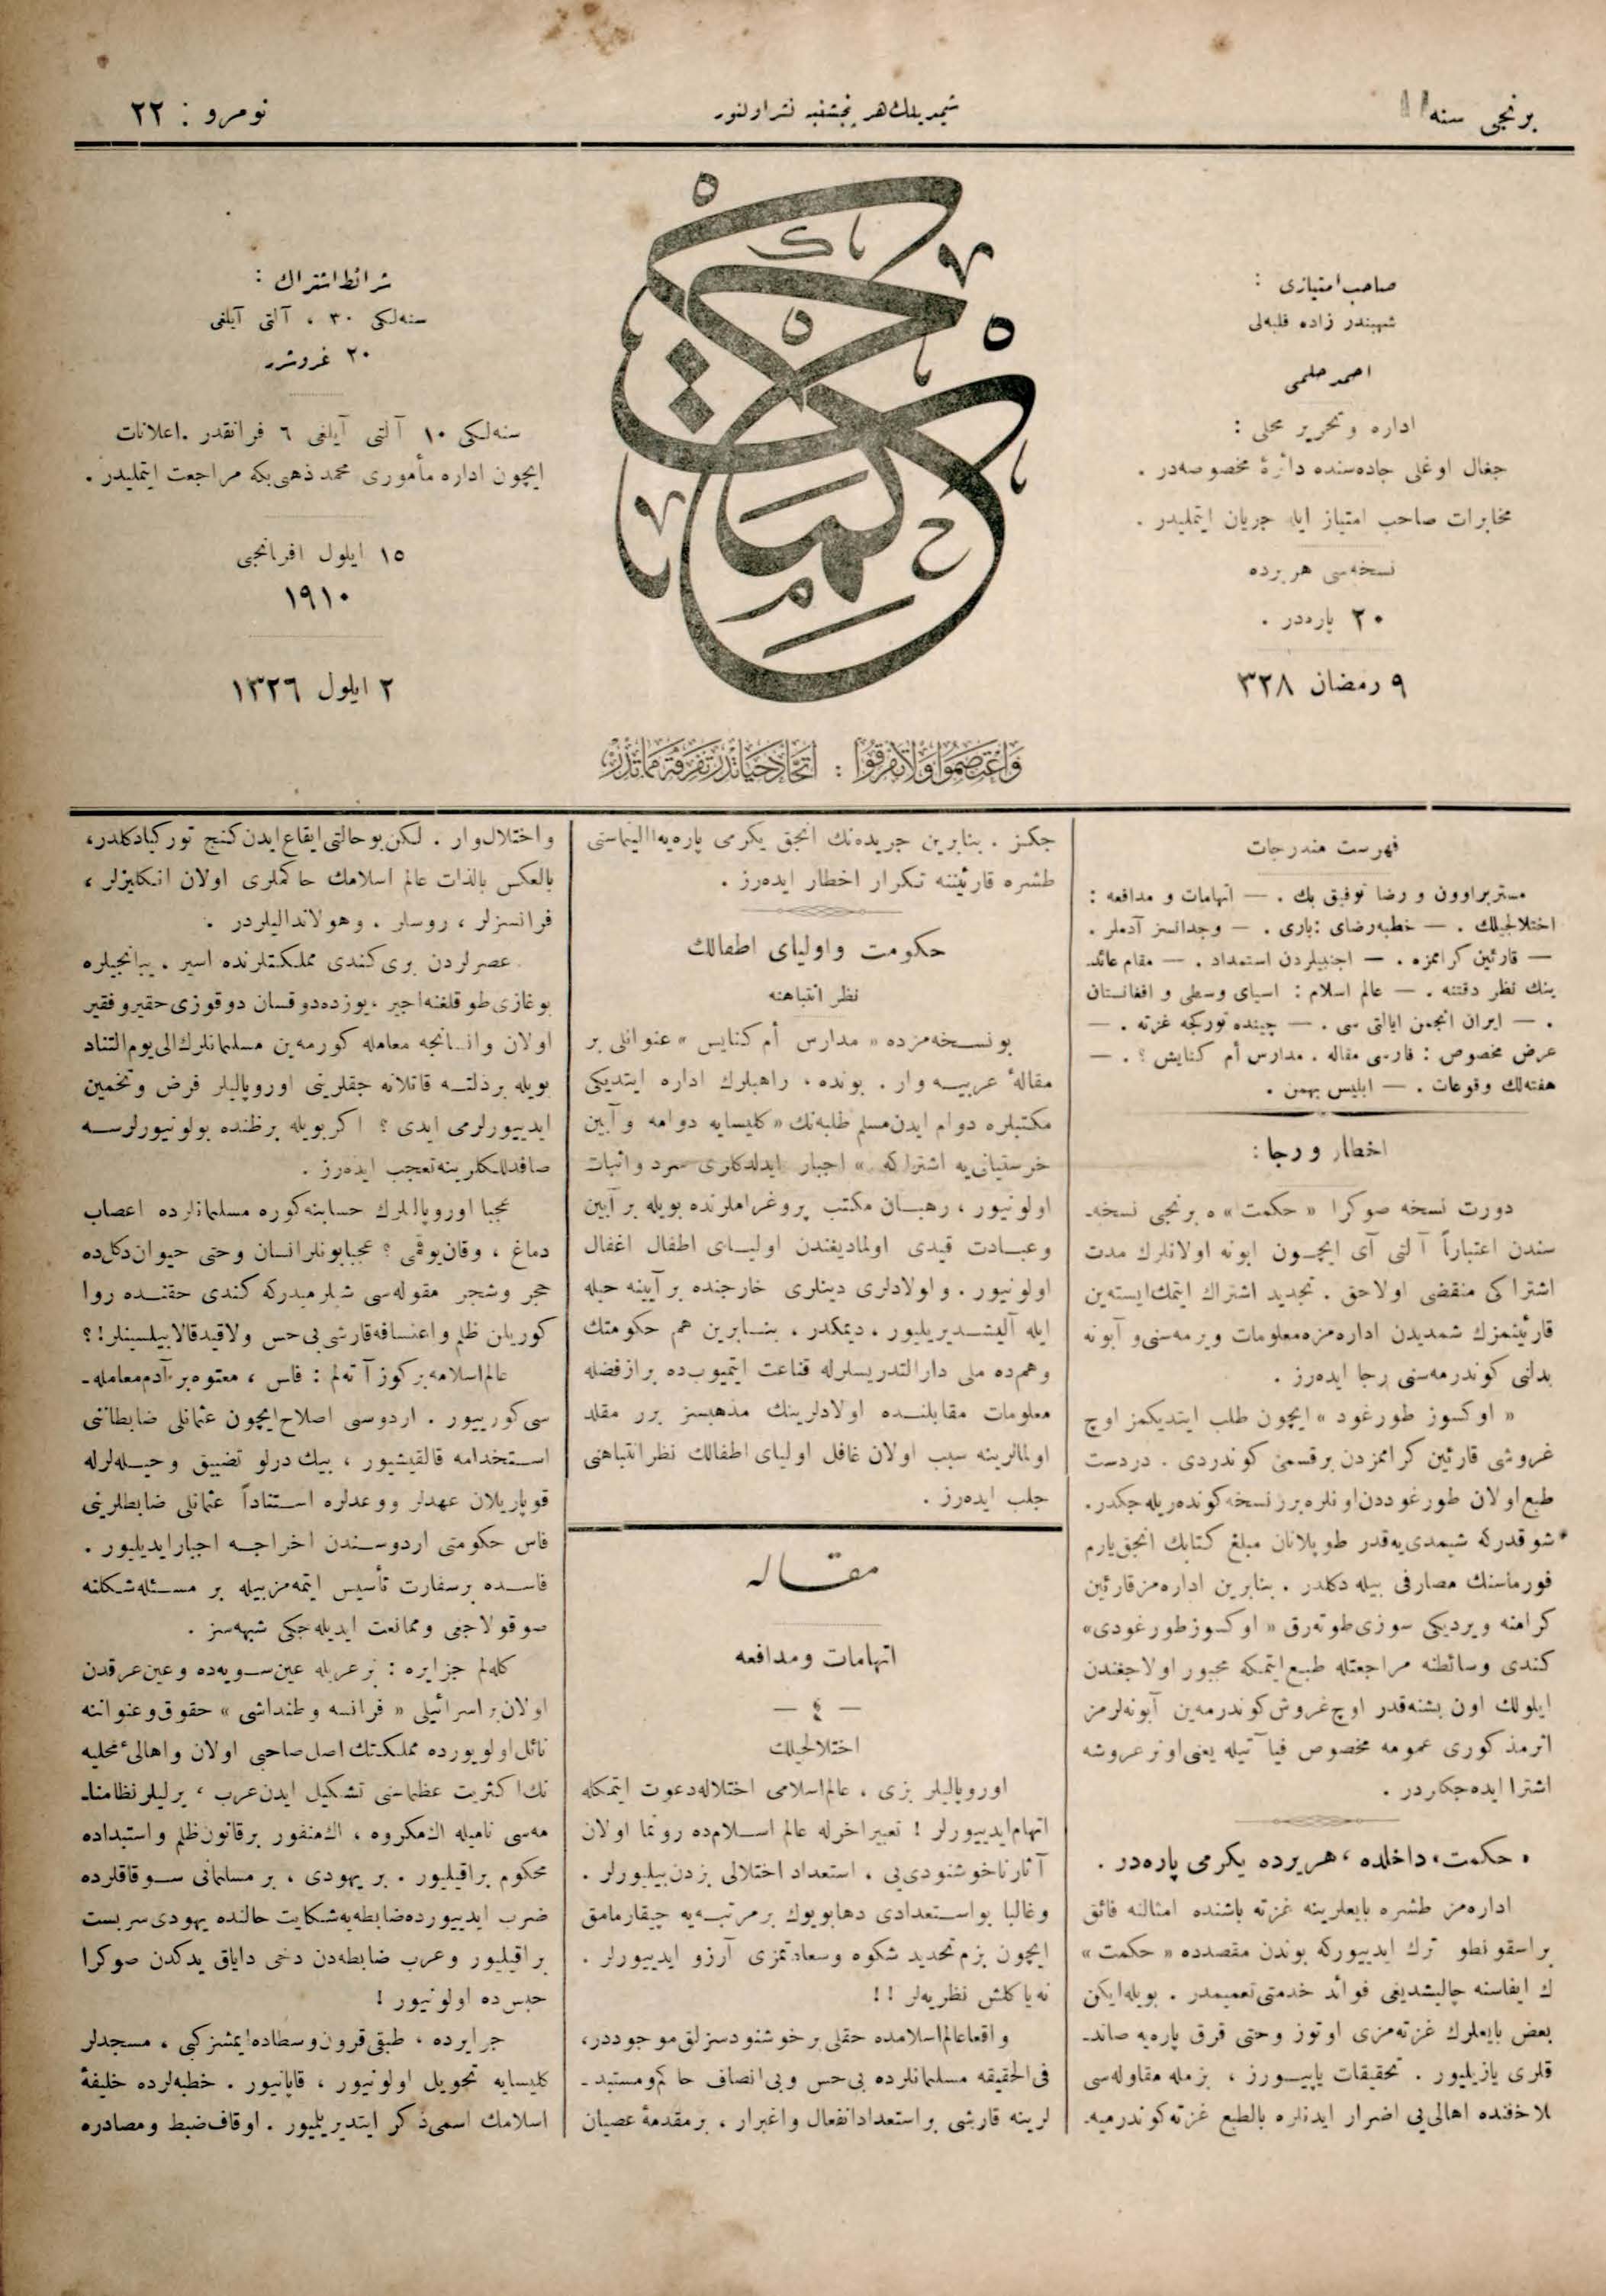 برنجى سنه
شيمديلك هر پنجشنبه نشر اولنور
نومرو : ٢٢
صاحب امتيازى :
شهبندر زاده فلبه‌لى
احمد حلمى
اداره و تحرير محلى :
جغال اوغلى جاده‌سنده دائرۀ مخصوصه‌در .
مخابرات صاحب امتياز ايله جريان ايتمليدر .
نسخه‌سى هر يرده
٢٠ پاره‌در .
٩ رمضان ٣٢٨
حكمت
شرائط اشتراك :
سنه‌لكى ٣٠ ، آلتى آيلغى
٢٠ غروشدر
سنه‌لكى ١٠ آلتى آيلغى ٦ فرانقدر . اعلانات
ايچون اداره مأمورى محمد ذهنى بكه مراجعت ايتمليدر .
١٥ ايلول افرنجى
١٩١٠
٢ ايلول ١٣٢٦
وَاعْتَصِمُوا وَلَا تَفَرَّقُوا : اتحاد حياتدر تفرقه مماتدر
فهرست مندرجات
مستر براوون و رضا توفيق بك . — اتهامات و مدافعه :
اختلالجيلك . — خطبه رضاى بارى . — وجدانسز آدملر .
— قارئين كرامزه . — اجنبيلردن استمداد . — مقام عائد‌
ينك نظر دقتنه . — عالم اسلام : اسياى وسطى و افغانستان
. — ايران انجمن ايالتى سى . — چينده توركجه غزته . —
عرض مخصوص : فارسى مقاله . مدارس أم كنايس ؟ . —
هفته‌لك وقوعات . — ابليس بهمن .
اخطار و رجا :
دورت نسخه صوكرا « حكمت » ه برنجى نسخه‌
سندن اعتباراً آلتى آى ايچون ابونه اولانلرك مدت
اشتراكى منقضى اولاجق . تجديد اشتراك ايتمك ايسته‌ين
قارئينمزك شمديدن اداره‌مزه معلومات ويرمه‌سنى و آبونه
بدلنى كوندرمه‌سنى رجا ايده‌رز .
« اوكسوز طورغود » ايچون طلب ايتديكمز اوچ
غروشى قارئين كرامزدن بر قسمى كوندردى . دردست
طبع اولان طورغوددن اونلره برر نسخه كوندريله‌جكدر .
شو قدركه شيمدى‌يه قدر طوپلانان مبلغ كتابك انجق يارم
فورماسنك مصارفى بيله دكلدر . بنابرين اداره‌مز قارئين
كرامنه ويرديكى سوزى طوته‌رق « اوكسوز طورغودى »
كندى وسائطنه مراجعتله طبع ايتمكه مجبور اولاجغندن
ايلولك اون بشنه قدر اوچ غروش كوندرمه‌ين آبونه‌لرمز
اثرمذكورى عمومه مخصوص فيآتيله يعنى اونر غروشه
اشترا ايده‌جكلردر .
« حكمت » داخلده ، هر يرده يكرمى پاره‌در .
اداره‌مز طشره بايعلرينه غزته باشنده امثالنه فائق
بر اسقونطو ترك ايدييوركه بوندن مقصدده « حكمت »
ك ايفاسنه چاليشديغى فوائد خدمتى تعميمدر . بويله ايكن
بعض بايعلرك غزته‌مزى اوتوز وحتى قرق پاره‌يه صاتد‌
قلرى يازيليور . تحقيقات ياپييورز ، بزمله مقاوله‌سى
لاحقنده اهالى‌يى اضرار ايدنلره بالطبع غزته كوندرميه‌
جكز . بنابرين جريده‌نك انجق يكرمى پاره‌يه آلينماسنى
طشره قارئيننه تكرار اخطار ايده‌رز .
حكومت و اولياى اطفالك
نظر انتباهنه
بو نسخه‌مزده « مدارس أم كنايس » عنوانلى بر
مقالهٔ عربيه وار . بونده ، راهبلرك اداره ايتديكى
مكتبلره دوام ايدن مسلم طلبه‌نك « كليسايه دوامه و آيين
خرستيانى‌يه اشتراكه » اجبار ايدلدكلرى سرد و اثبات
اولونيور ، رهبان مكتب پروغراملرنده بويله بر آيين
وعبادت قيدى اولماديغندن اولياى اطفال اغفال
اولونيور . و اولادلرى دينلرى خارجنده بر آيينه حيله
ايله آليشديريليور ، ديمكدر ، بنابرين هم حكومتك
وهم‌ده ملى دارالتدريسلرله قناعت ايتميوب‌ده بر از فضله
معلومات مقابلنده اولادلرينك مذهبسز برر مقلد
اولمالرينه سبب اولان غافل اولياى اطفالك نظر انتباهنى
جلب ايده‌رز .
مقاله
اتهامات و مدافعه
— ٤ —
اختلالجيلك
اوروپاليلر بزى ، عالم اسلامى اختلاله دعوت ايتمكله
اتهام ايدييورلر ! تعبير اخرله عالم اسلام‌ده رونما اولان
آثار ناخوشنودى‌يى ، استعداد اختلالى بزدن بيليورلر .
وغالبا بو استعدادى دها بويوك بر مرتبه‌يه چيقارمامق
ايچون بزم تحديد شكوه وسعادتمزى آرزو ايدييورلر .
نه ياكلش نظريه‌لر !!
واقعا عالم اسلامده حقلى بر خوشنودسزلق موجوددر ،
فى الحقيقه مسلمانلرده بى حس وبى انصاف حاكم ومستبد‌
لرينه قارشى بر استعداد انفعال واغبرار ، بر مقدمهٔ عصيان
و اختلال وار . لكن بو حالتى ايقاع ايدن كنج توركيا دكلدر ،
بالعكس بالذات عالم اسلامك حاكملرى اولان انكليزلر ،
فرانسزلر ، روسلر . وهولانداليلردر .
عصرلردن برى كندى مملكتلرنده اسير . يبانجيلره
بوغازى طوقلغنه اجير ، يوزده دوقسان دوقوزى حقير و فقير
اولان وانسانجه معامله كورمه‌ين مسلمانلرك الى يوم التناد
بويله بر ذلته قاتلانه جقلرينى اوروپاليلر فرض وتخمين
ايدييورلرمى ايدى ؟ اكر بويله بر ظنده بولونيورلرسه
صافدللكلرينه تعجب ايده‌رز .
عجبا اوروپاليلرك حسابنه كوره مسلمانلرده اعصاب
دماغ ، وقان يوقمى ؟ عجبا بونلر انسان وحتى حيوان دكل‌ده
حجر وشجر مقوله‌سى شيلرميدركه كندى حقنده روا
كوريلن ظلم واعتسافه قارشى بى حس ولاقيد قالابيلسينلر!؟
عالم اسلامه بر كوز آتەلم : فاس ، معتوه بر آدم معامله‌
سى كورييور . اردوسى اصلاح ايچون عثمانلى ضابطانى
استخدامه قالقيشيور ، بيك درلو تضييق وحيله‌لرله
قوپاريلان عهدلر ووعدلره استناداً عثمانلى ضابطلرينى
فاس حكومتى اردوسندن اخراجه اجبار ايديليور .
فاسده بر سفارت تأسيس ايتمه‌مز بيله بر مسئله شكلنه
صوقولاجغى وممانعت ايديله‌جكى شبهه‌سز .
كله‌لم جزايره : بر عربله عين سويه‌ده وعين عرقدن
اولان بر اسرائيلى « فرانسه وطنداشى » حقوق وعنواننه
نائل اولويورده مملكتك اصل صاحبى اولان واهالىٔ محليه
نك اكثريت عظماسنى تشكيل ايدن عرب ، يرليلر نظامنا‌
مه‌سى ناميله اك مكروه ، اك منفور بر قانون ظلم واستبداده
محكوم براقيليور . بر يهودى ، بر مسلمانى سوقاقلرده
ضرب ايدييورده ضابطه‌يه شكايت حالنده يهودى سربست
براقيليور وعرب ضابطه‌دن دخى داياق يدكدن صوكرا
حبس ده اولونيور !
جزايرده ، طبقى قرون وسطاده ايمشز كبى ، مسجدلر
كليسايه تحويل اولونيور ، قاپانيور . خطبه‌لرده خليفهٔ
اسلامك اسمى ذكر ايتديريليور . اوقاف ضبط ومصادره